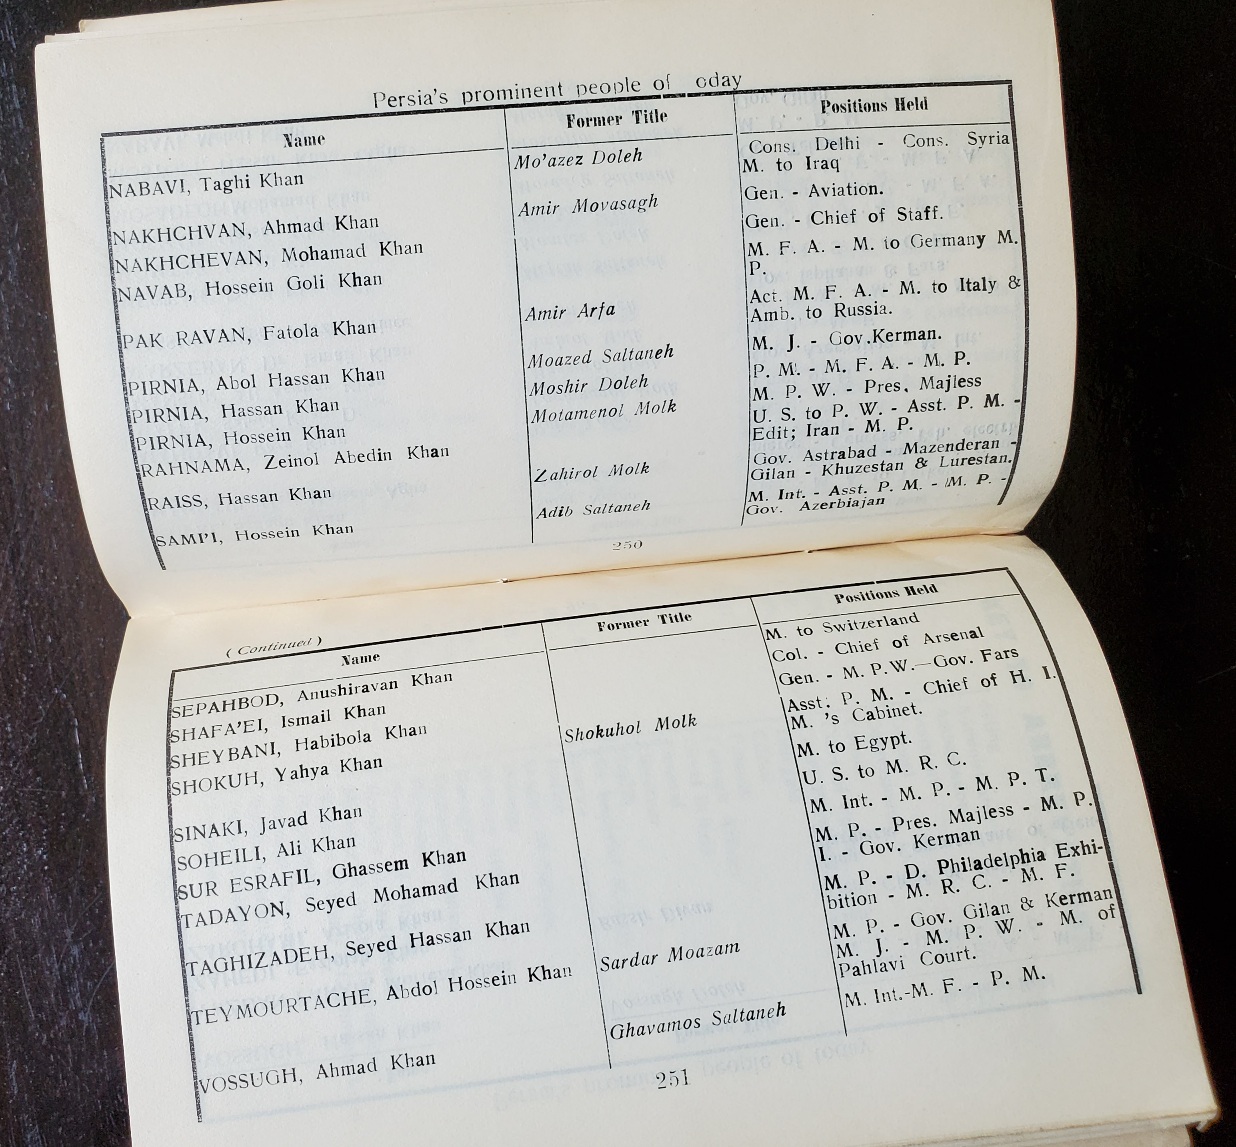 Persia's prominent people of oday
Name Former Title Positions Held
NABAVI, Taghi Khan Mo'azez Doleh Cons. Delhi - Cons. Syria
M. to Iraq
NAKHCHVAN, Ahmad Khan Amir Movasagh Gen. - Aviation.
NAKHCHEVAN, Mohamad Khan Gen. - Chief of Staff.
NAVAB, Hossein Goli Khan M. F. A. - M. to Germany M.
P.
PAK RAVAN, Fatola Khan Amir Arfa Act. M. F. A. - M. to Italy &
Amb. to Russia.
PIRNIA, Abol Hassan Khan Moazed Saltaneh M. J. - Gov.Kerman.
PIRNIA, Hassan Khan Moshir Doleh P. M. - M. F. A. - M. P.
PIRNIA, Hossein Khan Motamenol Molk M. P. W. - Pres. Majless
RAHNAMA, Zeinol Abedin Khan U. S. to P. W. - Asst. P. M. -
Edit; Iran - M. P.
RAISS, Hassan Khan Zahirol Molk Gov. Astrabad - Mazenderan -
Gilan - Khuzestan & Lurestan.
SAMI'I, Hossein Khan Adib Saltaneh M. Int. - Asst. P. M. - M. P. -
Gov. Azerbiajan
250
( Continued )
Name Former Title Positions Held
SEPAHBOD, Anushiravan Khan M. to Switzerland
SHAFA'EI, Ismail Khan Col. - Chief of Arsenal
SHEYBANI, Habibola Khan Gen. - M. P.W.—Gov. Fars
SHOKUH, Yahya Khan Shokuhol Molk Asst. P. M. - Chief of H. I.
M. 's Cabinet.
SINAKI, Javad Khan M. to Egypt.
SOHEILI, Ali Khan U. S. to M. R. C.
SUR ESRAFIL, Ghassem Khan M. Int. - M. P. - M. P. T.
TADAYON, Seyed Mohamad Khan M. P. - Pres. Majless - M. P.
I. - Gov. Kerman
TAGHIZADEH, Seyed Hassan Khan M. P. - D. Philadelphia Exhi-
bition - M. R. C. - M. F.
TEYMOURTACHE, Abdol Hossein Khan Sardar Moazam M. P. - Gov. Gilan & Kerman
M. J. - M. P. W. - M. of
Pahlavi Court.
VOSSUGH, Ahmad Khan Ghavamos Saltaneh M. Int.-M. F. - P. M.
251